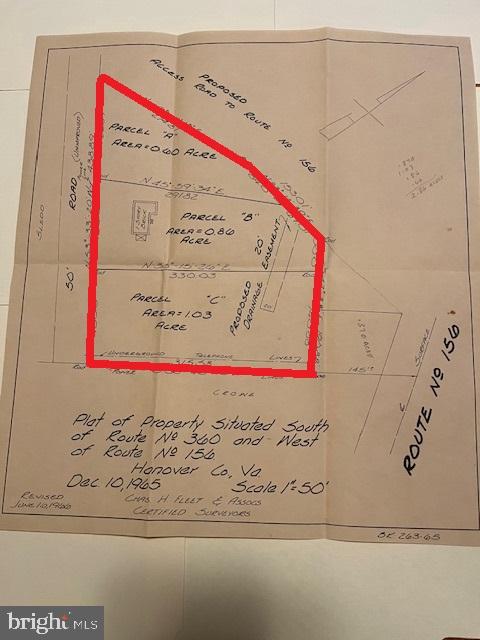 PROPOSED
ACCESS ROAD TO ROUTE Nº 156
PARCEL "A"
AREA = 0.60 ACRE
N 45°-59'-34" E
291.82
1-STORY
BRICK
PARCEL "B"
AREA = 0.86
ACRE
N 38°-15'-26" E
330.03
PARCEL "C"
AREA = 1.03
ACRE
PROPOSED
DRAINAGE
20' EASEMENT
20'
ROAD (UNIMPROVED)
50'
SLEDD
Rod
Rod
UNDERGROUND TELEPHONE LINES
POWER LINES
Rod
Rod
315.58
145'±
CRONE
.370 ACRE
SURFACE
ROUTE Nº 156
Plat of Property Situated South
of Route Nº 360 and West
of Route Nº 156
Hanover Co, Va.
Dec 10, 1965 Scale 1"=50'
REVISED
JUNE 10, 1966
CHAS H FLEET & ASSOCS
CERTIFIED SURVEYORS
BK 263-65
bright MLS